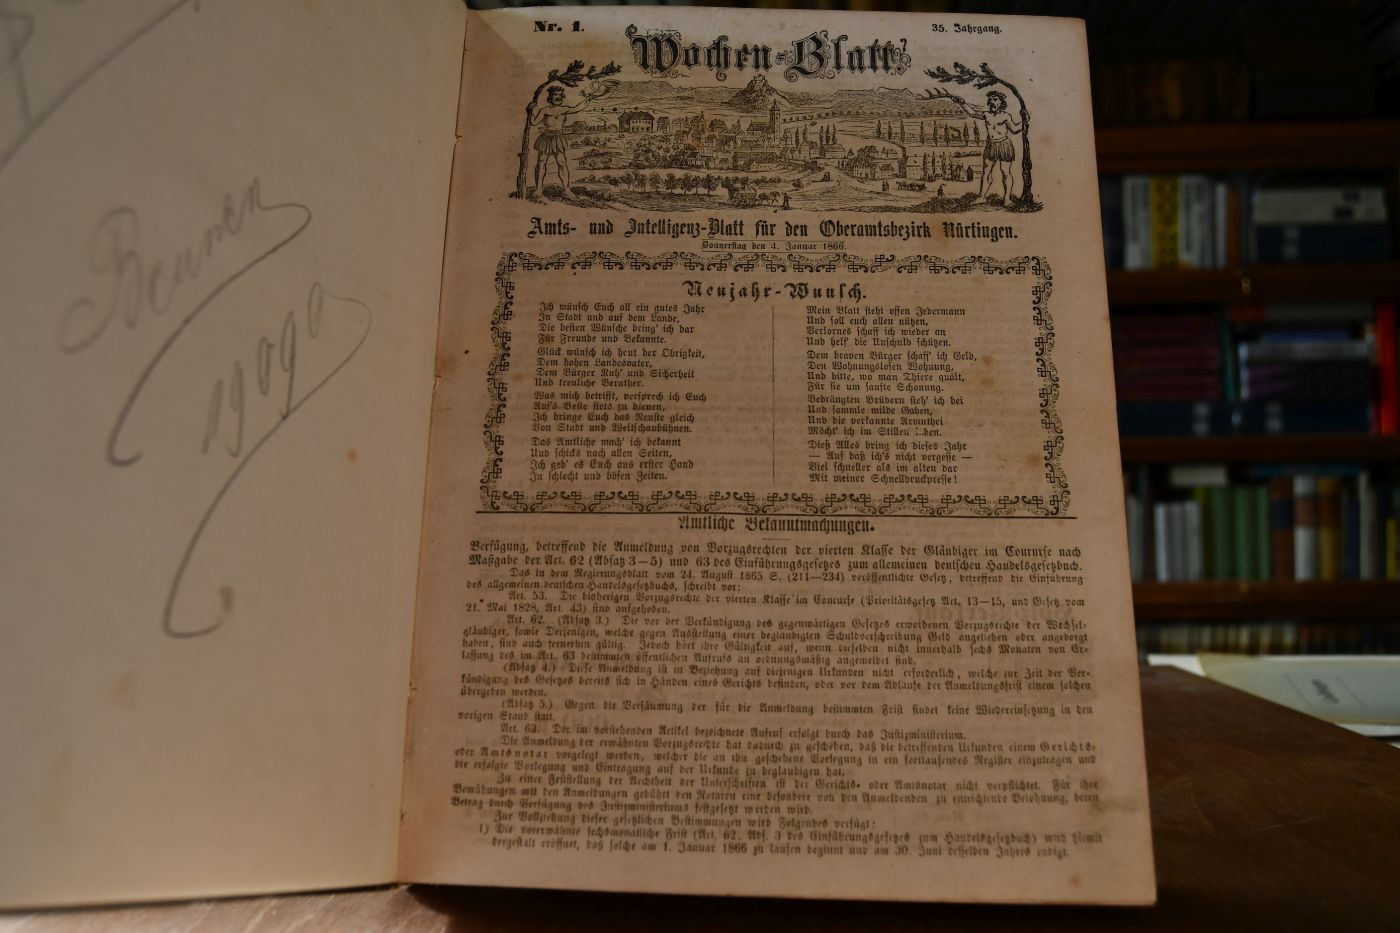 Nr. 1.
35. Jahrgang.
Wochen-Blatt.
Amts- und Intelligenz-Blatt für den Oberamtsbezirk Nürtingen.
Donnerstag den 4. Januar 1866.
Neujahr-Wunsch.
Ich wünsch Euch all ein gutes Jahr
In Stadt und auf dem Lande,
Die besten Wünsche bring' ich dar
Für Freunde und Bekannte.
Glück wünsch ich heut der Obrigkeit,
Dem hohen Landesvater,
Dem Bürger Ruh' und Sicherheit
Und treuliche Berather.
Was mich betrifft, versprech ich Euch
Auf's Beste stets zu dienen,
Ich bringe Euch das Neuste gleich
Von Stadt und Weltschaubühnen.
Das Amtliche mach' ich bekannt
Und schicks nach allen Seiten,
Ich geb' es Euch aus erster Hand
In schlecht und bösen Zeiten.
Mein Blatt steht offen Jedermann
Und soll euch allen nützen,
Verlornes schaff ich wieder an
Und helf' die Unschuld schützen.
Dem braven Bürger schaff' ich Geld,
Den Wohnungslosen Wohnung,
Und bitte, wo man Thiere quält,
Für sie um sanfte Schonung.
Bedrängten Brüdern steh' ich bei
Und sammle milde Gaben,
Und die verkannte Armuthei
Möcht' ich im Stillen
Dieß Alles bring ich dieses Jahr
— Auf daß ich's nicht vergesse —
Viel schneller als im alten dar
Mit meiner Schnelldruckpresse!
Amtliche Bekanntmachungen.
Verfügung, betreffend die Anmeldung von Vorzugsrechten der vierten Klasse der Gläubiger im Concurse nach
Maßgabe der Art. 62 (Absatz 3—5) und 63 des Einführungsgesetzes zum allgemeinen deutschen Handelsgesetzbuch.
Das in dem Regierungsblatt vom 24. August 1865 S. (211—234) veröffentlichte Gesetz, betreffend die Einführung
des allgemeinen deutschen Handelsgesetzbuchs, schreibt vor:
Art. 53. Die bisherigen Vorzugsrechte der vierten Klasse im Concurse (Prioritätsgesetz Art. 13—15, und Gesetz vom
21. Mai 1828, Art. 43) sind aufgehoben.
Art. 62. (Absatz 3.) Die vor der Verkündigung des gegenwärtigen Gesetzes erworbenen Vorzugsrechte der Wechsel-
gläubiger, sowie Derjenigen, welche gegen Ausstellung einer beglaubigten Schuldverschreibung Geld angeliehen oder angeborgt
haben, sind auch fernerhin gültig. Jedoch hört ihre Gültigkeit auf, wenn dieselben nicht innerhalb sechs Monaten von Er-
lassung des im Art. 63 bestimmten öffentlichen Aufrufs an ordnungsmäßig angemeldet sind.
(Absatz 4.) Diese Anmeldung ist in Beziehung auf diejenigen Urkunden nicht erforderlich, welche zur Zeit der Ver-
kündigung des Gesetzes bereits sich in Händen eines Gerichts befinden, oder vor dem Ablaufe der Anmeldungsfrist einem solchen
übergeben werden.
(Absatz 5.) Gegen die Versäumung der für die Anmeldung bestimmten Frist findet keine Wiedereinsetzung in den
vorigen Stand statt.
Art. 63. Der im vorstehenden Artikel bezeichnete Aufruf erfolgt durch das Justizministerium.
Die Anmeldung der erwähnten Vorzugsrechte hat dadurch zu geschehen, daß die betreffenden Urkunden einem Gerichts-
oder Amtsnotar vorgelegt werden, welcher die an ihn geschehene Vorlegung in ein fortlaufendes Register einzutragen und
die erfolgte Vorlegung und Eintragung auf der Urkunde zu beglaubigen hat.
Zu einer Feststellung der Aechtheit der Unterschriften ist der Gerichts- oder Amtsnotar nicht verpflichtet. Für ihre
Bemühungen mit den Anmeldungen gebührt den Notaren eine besondere von den Anmeldenden zu entrichtende Belohnung, deren
Betrag durch Verfügung des Justizministeriums festgesetzt werden wird.
Zur Vollziehung dieser gesetzlichen Bestimmungen wird Folgendes verfügt:
1) Die vorerwähnte sechsmonatliche Frist (Art. 62. Abs. 3 des Einführungsgesetzes zum Handelsgesetzbuch) wird hiemit
dergestalt eröffnet, daß solche am 1. Januar 1866 zu laufen beginnt und am 30. Juni desselben Jahres endigt.